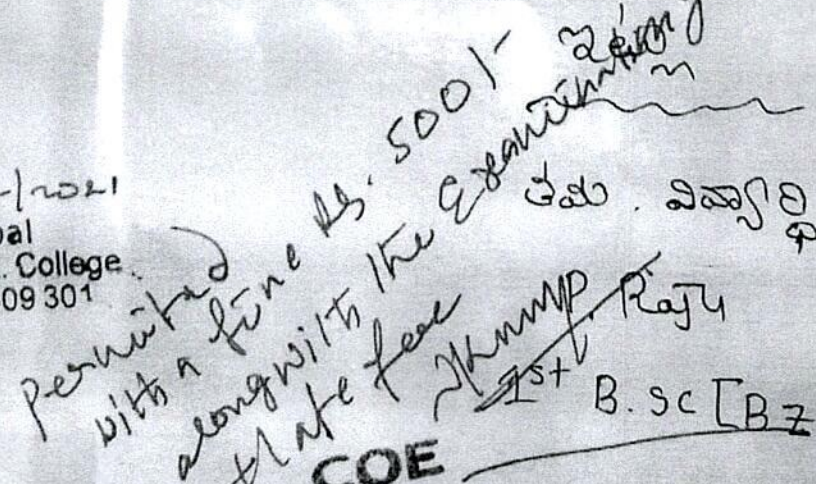 /2021
pal
. College.
09 301
Permitted
with a fine Rs. 500/-
alongwith the Examination
+ late fee
COE
ತಮ್ಮ . ವಿದ್ಯಾರ್ಥಿ
Raju
1st B.sc [BZ